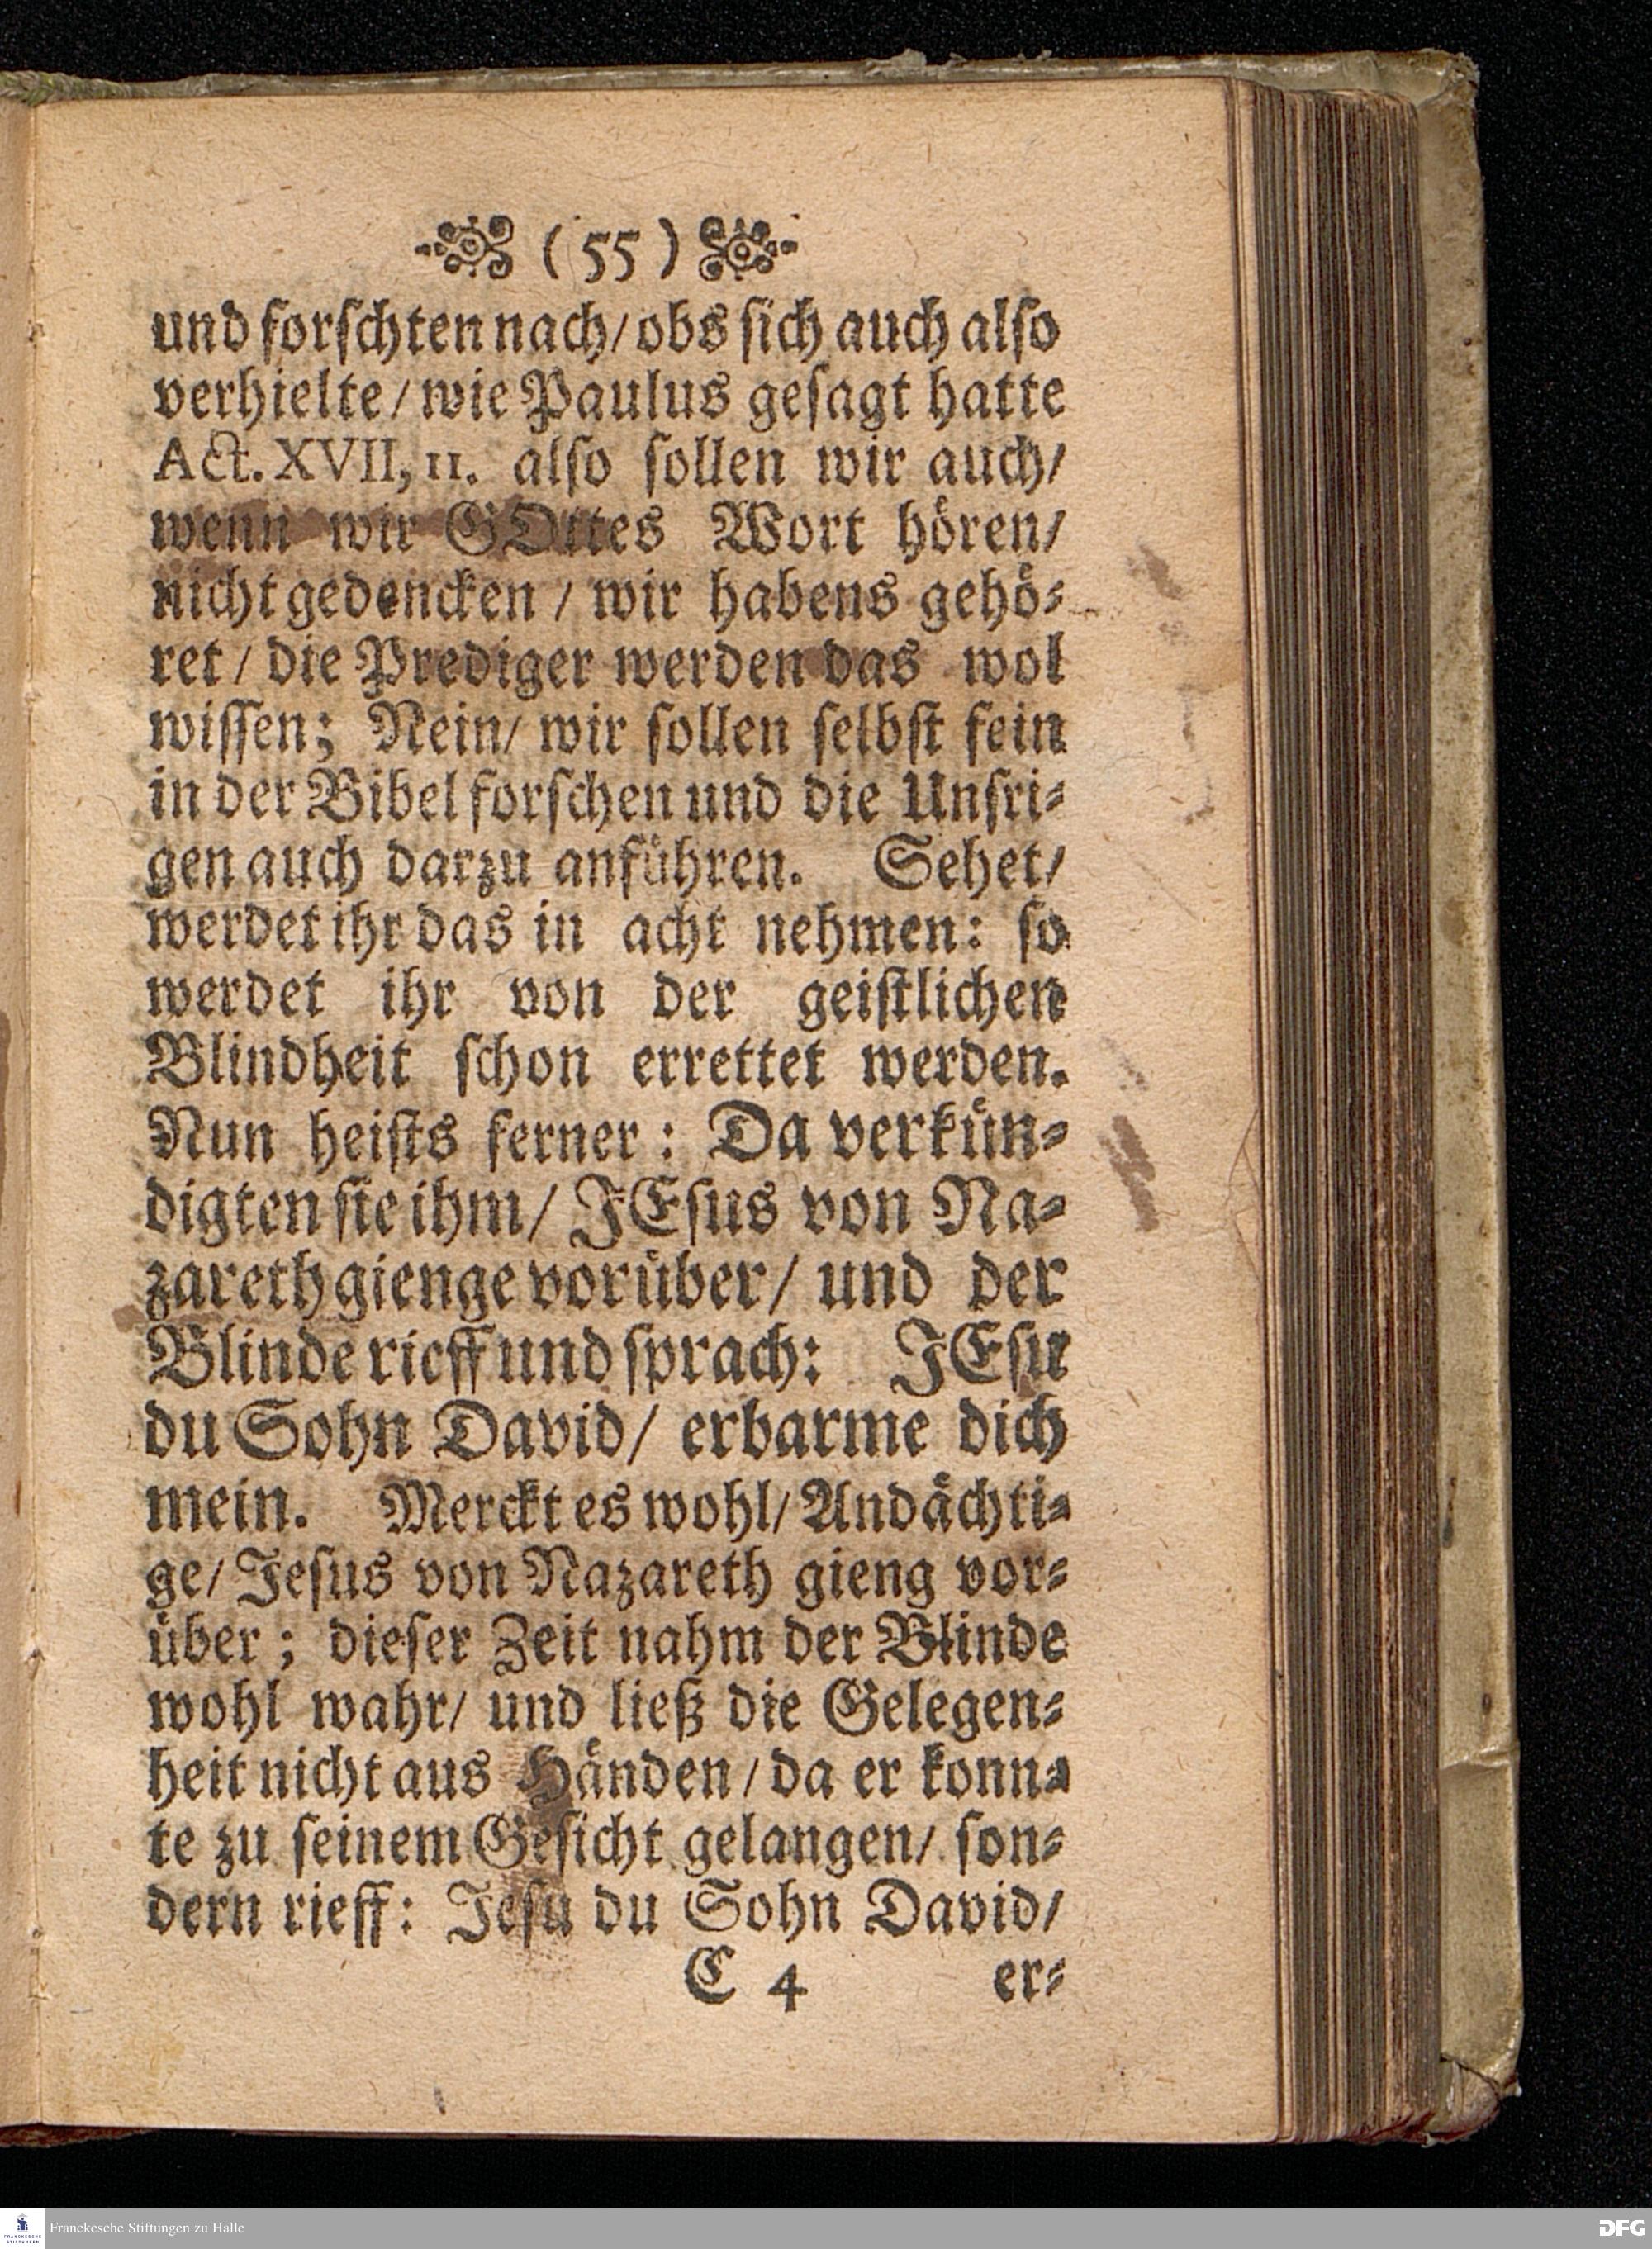 ( 55 )
und forschten nach/ obs sich auch also
verhielte/ wie Paulus gesagt hatte
Act. XVII, 11. also sollen wir auch/
wenn wir GOttes Wort hören/
nicht gedencken / wir habens gehö-
ret / die Prediger werden das wol
wissen; Nein/ wir sollen selbst fein
in der Bibel forschen und die Unsri-
gen auch darzu anführen. Sehet/
werdet ihr das in acht nehmen: so
werdet ihr von der geistlichen
Blindheit schon errettet werden.
Nun heists ferner: Da verkün-
digten sie ihm/ JEsus von Na-
zareth gienge vorüber/ und der
Blinde rieff und sprach: JEsu
du Sohn David/ erbarme dich
mein. Merckt es wohl/ Andächti-
ge/ Jesus von Nazareth gieng vor-
über; dieser Zeit nahm der Blinde
wohl wahr/ und ließ die Gelegen-
heit nicht aus Händen/ da er konn-
te zu seinem Gesicht gelangen/ son-
dern rieff: Jesu du Sohn David/
C 4 er-
Franckesche Stiftungen zu Halle
DFG